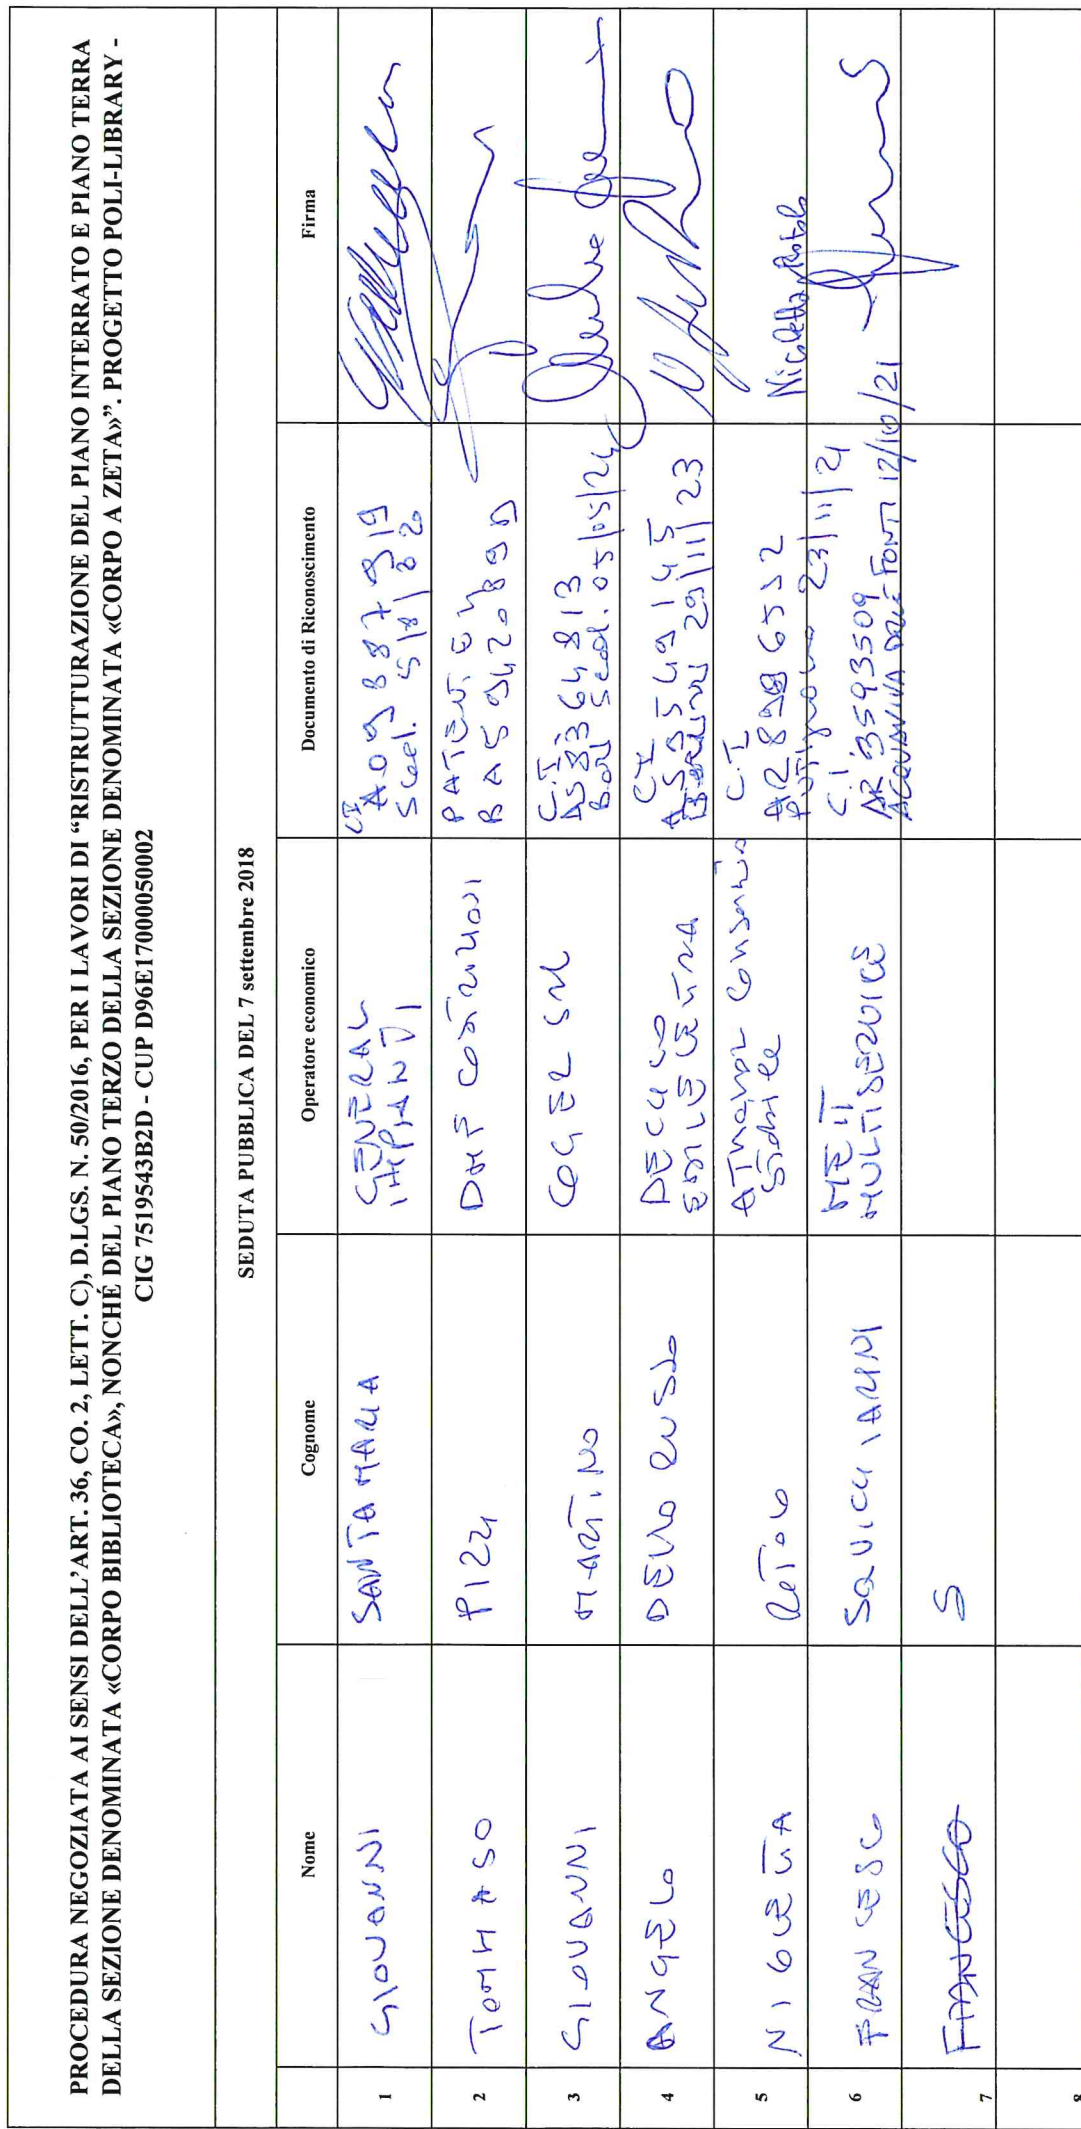 PROCEDURA NEGOZIATA AI SENSI DELL'ART. 36, CO. 2, LETT. C), D.LGS. N. 50/2016, PER I LAVORI DI “RISTRUTTURAZIONE DEL PIANO INTERRATO E PIANO TERRA
DELLA SEZIONE DENOMINATA «CORPO BIBLIOTECA», NONCHÉ DEL PIANO TERZO DELLA SEZIONE DENOMINATA «CORPO A ZETA»”. PROGETTO POLI-LIBRARY -
CIG 7519543B2D - CUP D96E17000050002
SEDUTA PUBBLICA DEL 7 settembre 2018
Nome Cognome Operatore economico Documento di Riconoscimento Firma
1 GIOVANNI SANTAMARIA GENERAL IMPIANTI CI
A09887919
Scad. 5/8/20
2 TOMMASO PIZZI DMF COSTRUZIONI PATENTE
BA5942089D
3 GIOVANNI MARTINO COGER SRL C.I.
AS8364813
Bari Scad. 05/05/24
4 ANGELO DELLO RUSSO DECICO EDILCETINA C.I.
AS3549145
29/11/23
5 NICOLETTA ROTOLO ATHANOR Consorzio Stabile C.I
AR8996552
Putignano 23/11/21 Nicoletta Rotolo
6 FRANCESCO SQUICCIARINI MEIT MULTISERVICE C.I.
AR3593509
ACQUAVIVA DELLE FONTI 12/10/21
7 FRANCESCO S
8